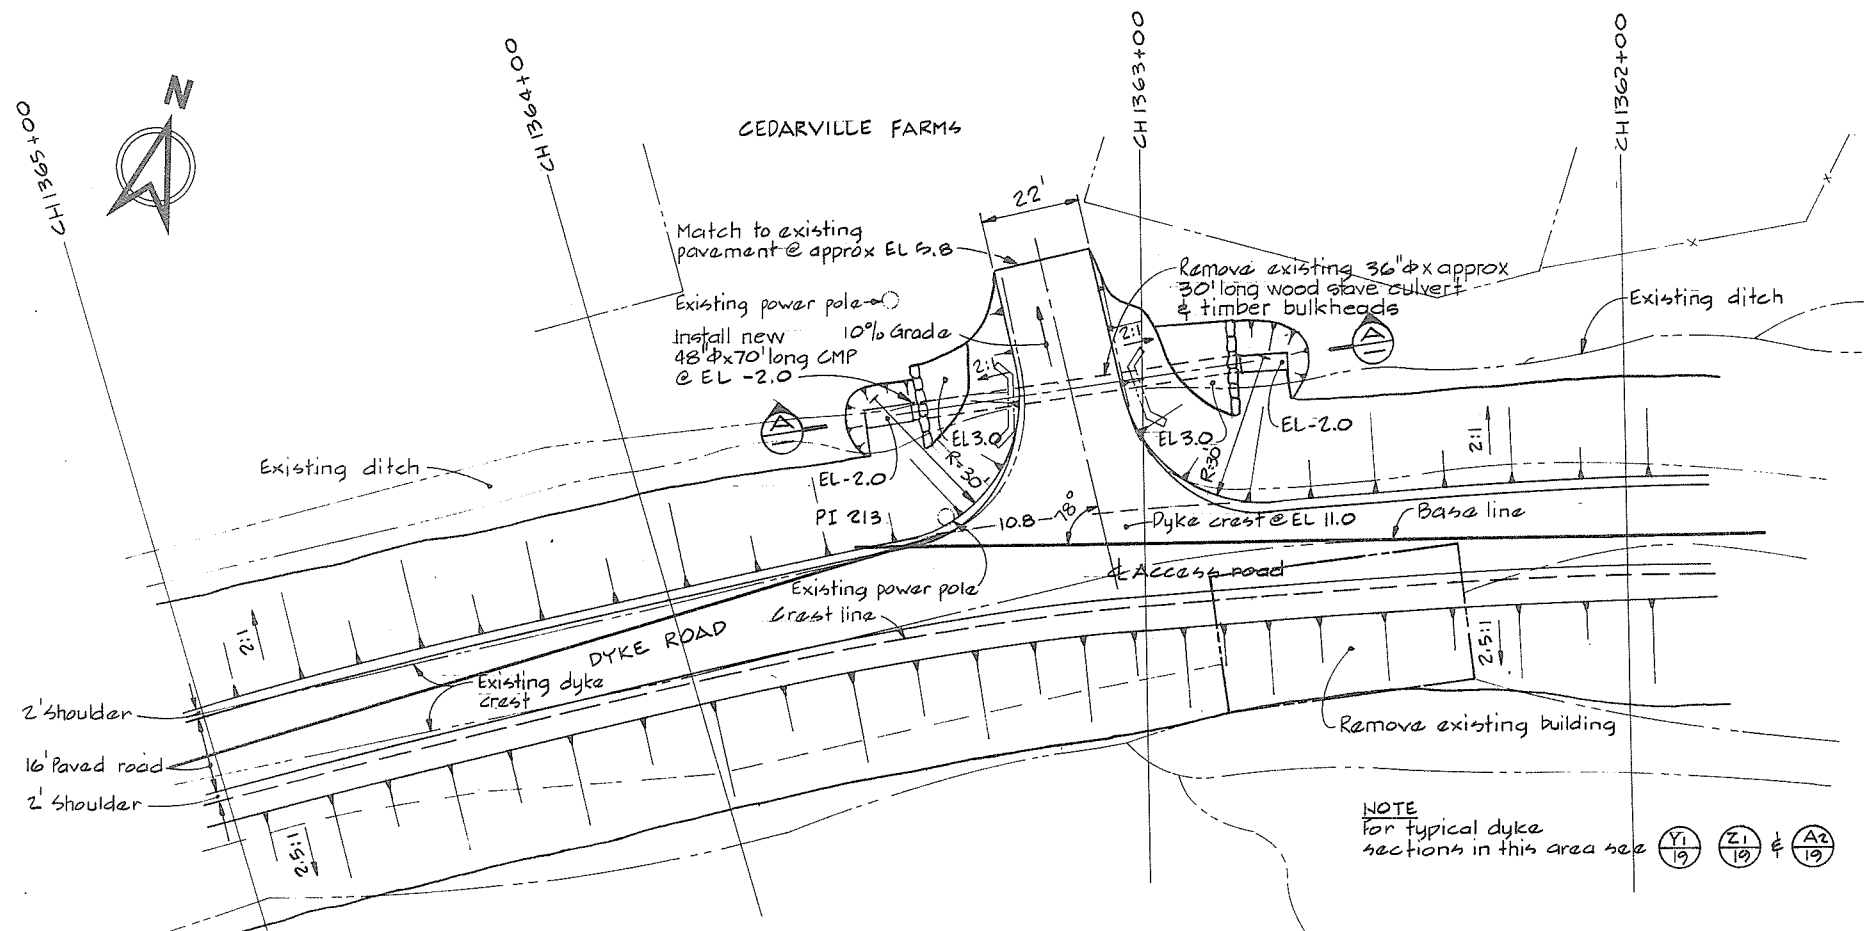 N
CH 1365+00
CH 1364+00
CH 1363+00
CH 1362+00
CEDARVILLE FARMS
22'
Match to existing
pavement @ approx EL 5.8
Existing power pole
Install new
48"φx70' long CMP
@ EL -2.0
10% Grade
Remove existing 36"φx approx
30' long wood stave culvert
& timber bulkheads
Existing ditch
A
A
2:1
2:1
EL 3.0
EL 3.0
EL -2.0
EL -2.0
R=30'
R=30'
2:1
Existing ditch
PI 213
10.8
78°
Dyke crest @ EL 11.0
Base line
℄ Access road
Existing power pole
Crest line
DYKE ROAD
2:1
Existing dyke
crest
2' Shoulder
16' Paved road
2' Shoulder
2.5:1
2.5:1
Remove existing building
NOTE
For typical dyke
sections in this area see Y1/19 Z1/19 & A2/19